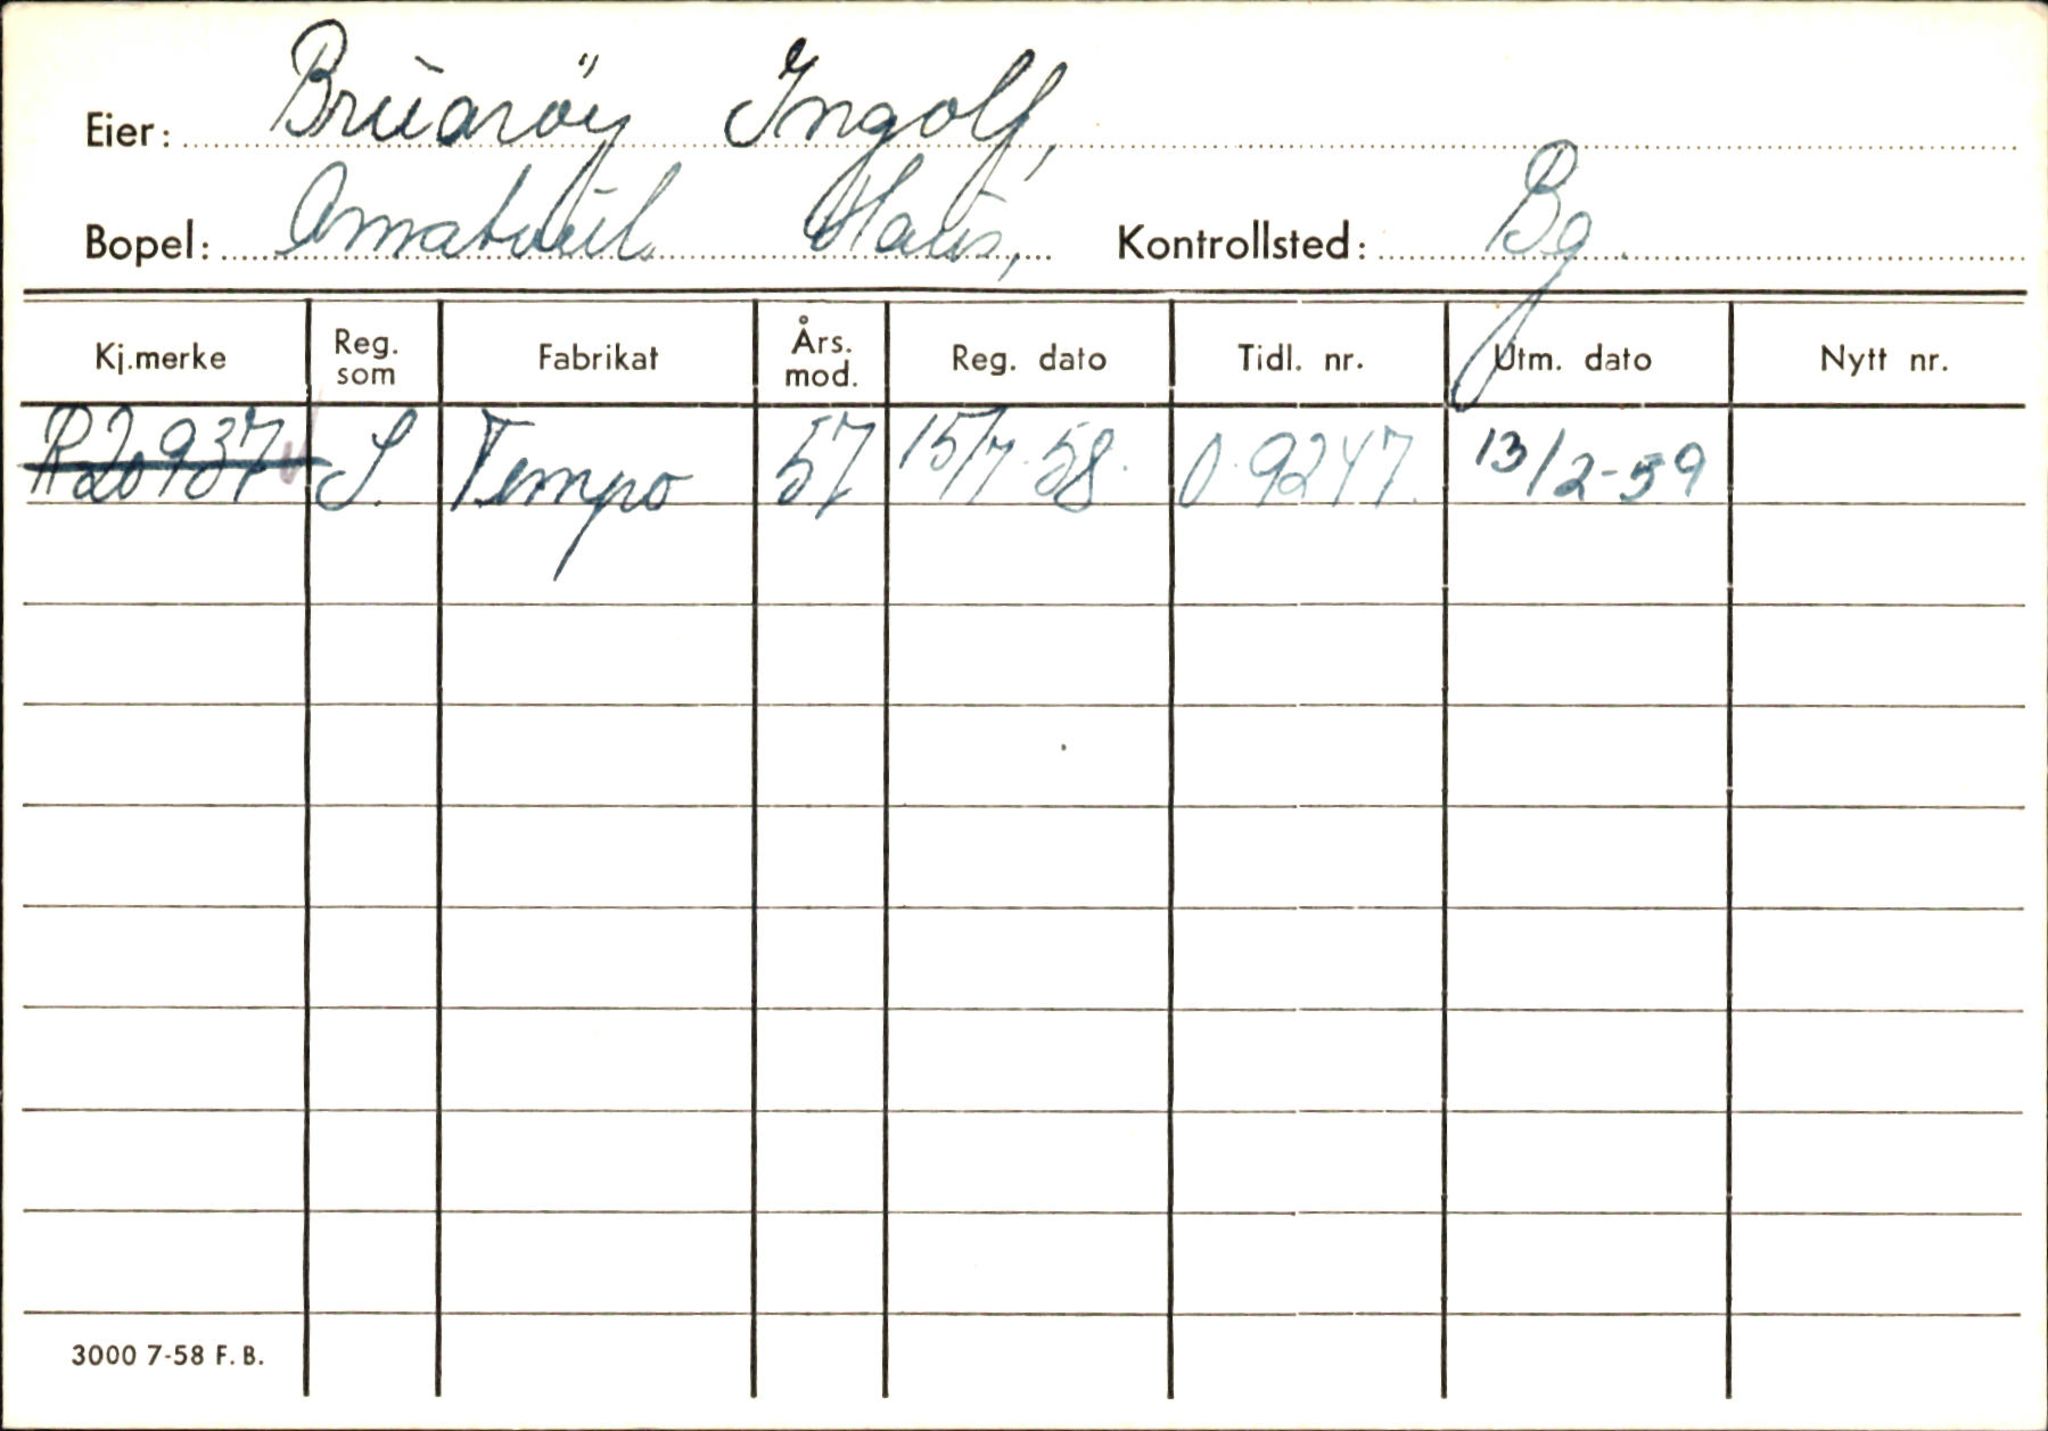 Eier: Bruarøy Ingolf,
Bopel: Amatveit Haus, Kontrollsted: Bg.
Kj.merke Reg. som Fabrikat Års. mod. Reg. dato Tidl. nr. Utm. dato Nytt nr.
R20937 S. Tempo 57 15/7-58. O-9247. 13/2-59
3000 7-58 F. B.